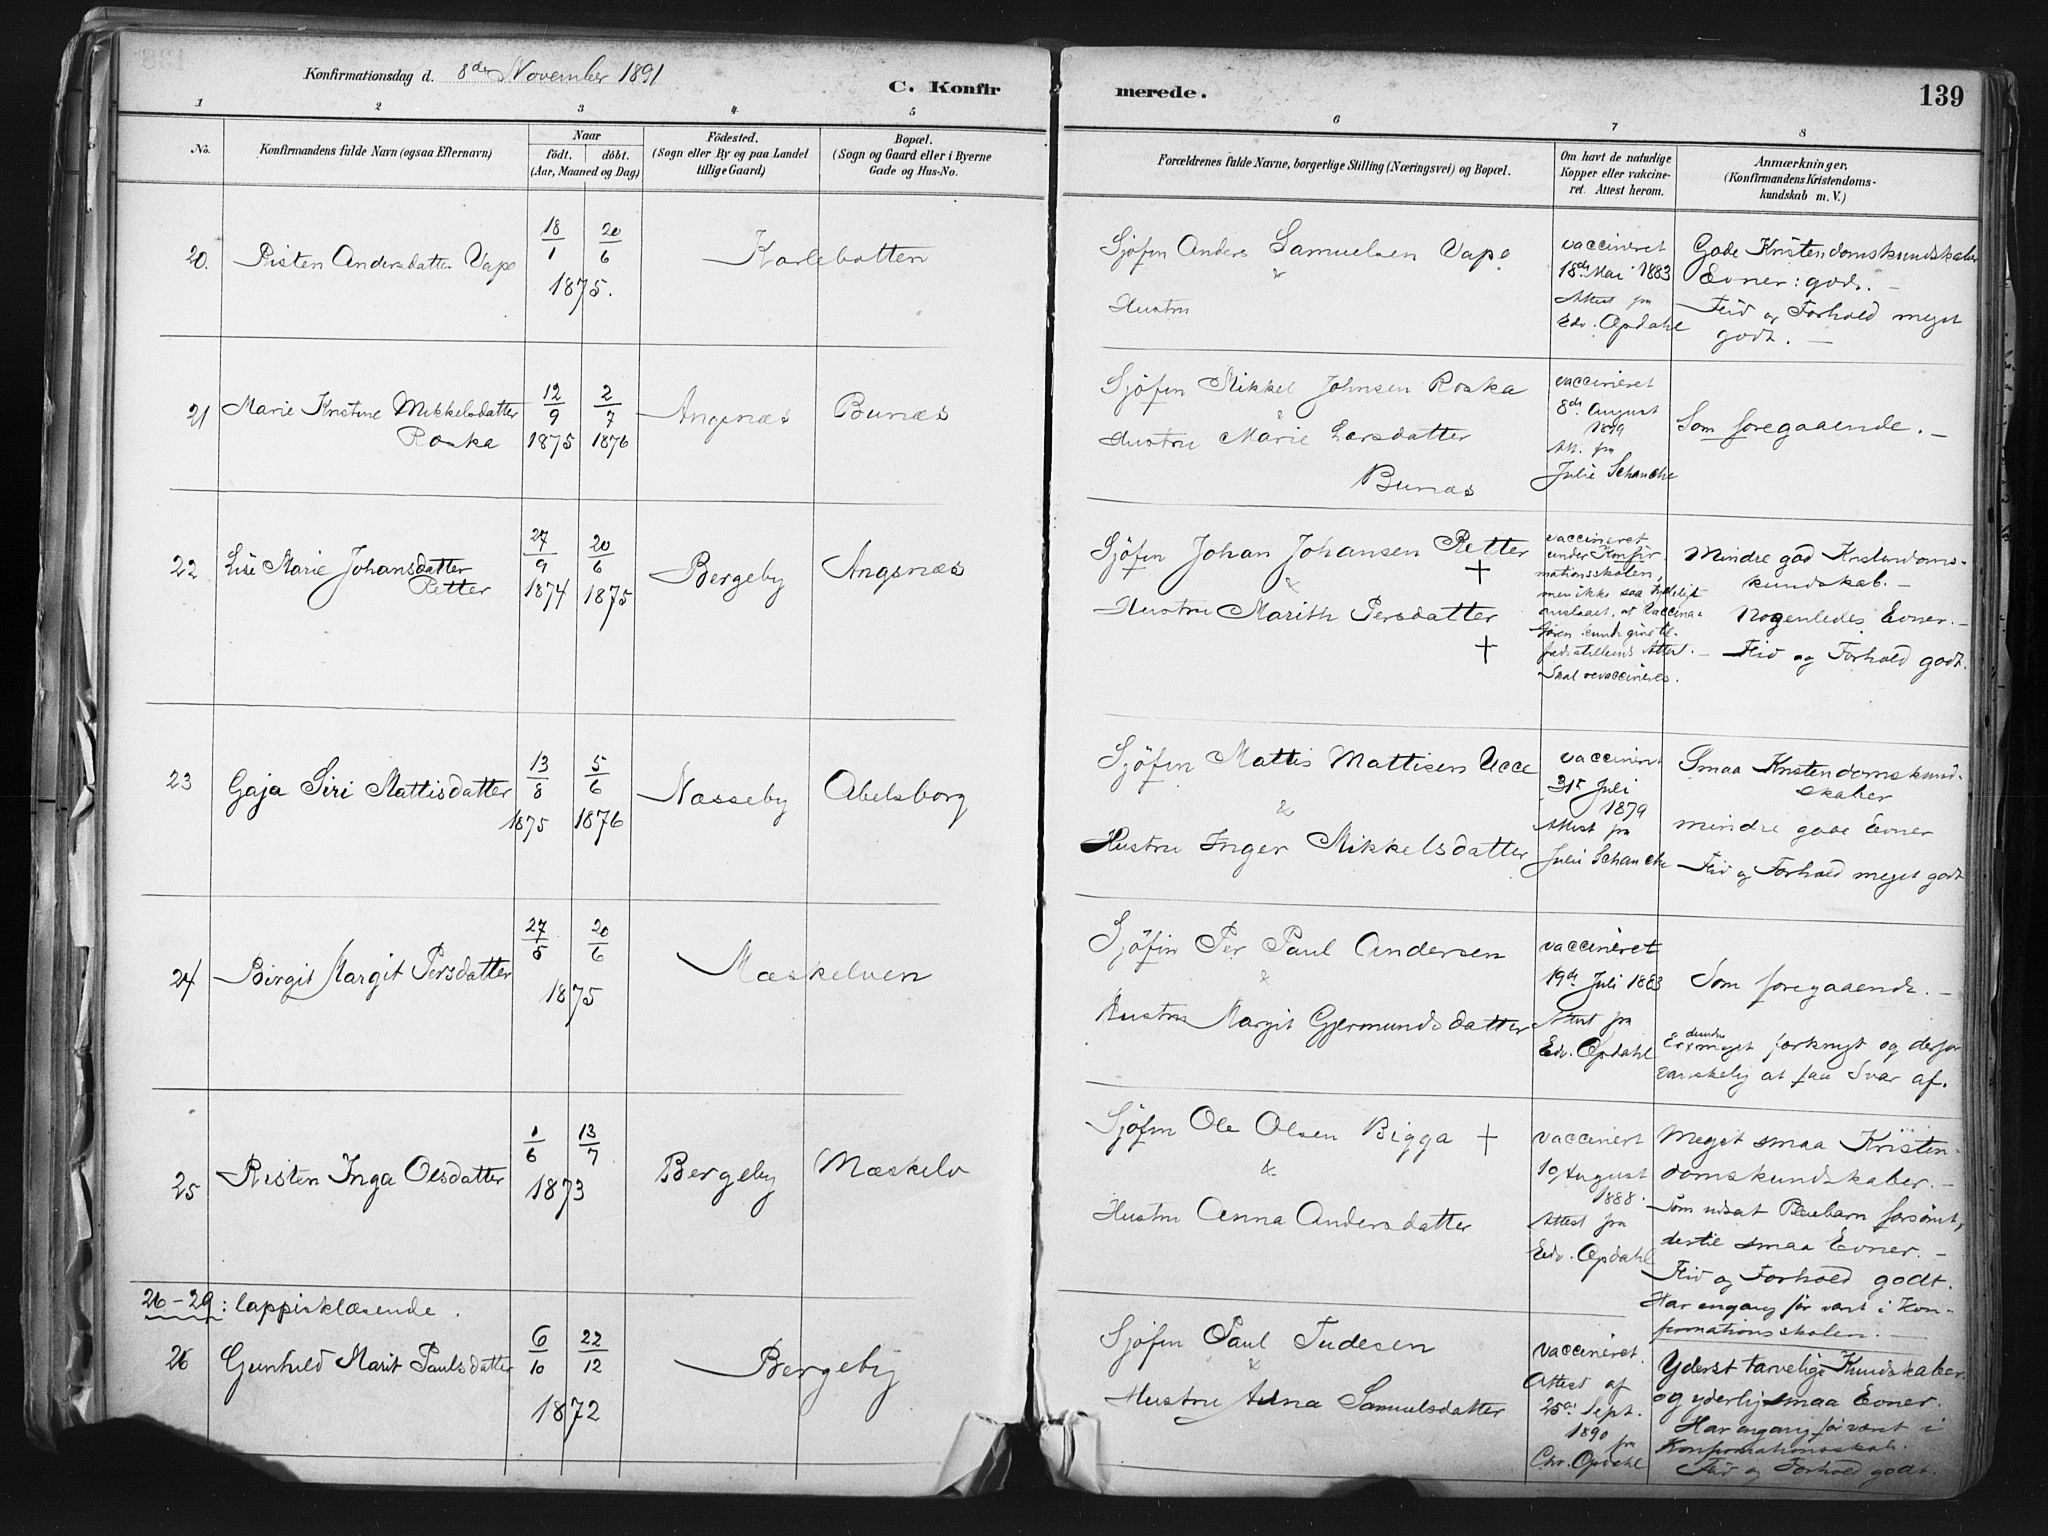 Konfirmationsdag d. 8de November 1891
C. Konfirmerede.
139
1 2 3 4 5 6 7 8
No.
Konfirmandens fulde Navn (ogsaa Efternavn)
Naar
födt. döbt.
(Aar, Maaned og Dag)
Födested.
(Sogn eller By og paa Landet
tillige Gaard)
Bopæl.
(Sogn og Gaard eller i Byerne
Gade og Hus-No.
Forældrenes fulde Navne, borgerlige Stilling (Næringsvei) og Bopæl.
Om havt de naturlige
Kopper eller vakcine-
ret. Attest herom.
Anmærkninger,
(Konfirmandens Kristendoms-
kundskab m. V.)
20. Risten Andersdatter Vape
18/1 20/6
1875.
Karlebotten
Sjöfin Anders Samuelsen Vape
&
Hustru
vaccineret
18de Mai 1883
Attest fra
Edv. Opdahl
Gode Kristendomskundskaber
Evner: gode. -
Flid og Forhold meget
godt. -
21 Marie Kristine Mikkelsdatter
Roska
12/9 2/7
1875 1876
Angsnæs
Bunæs
Sjöfin Mikkel Johnsen Roska
&
Hustru Marie Larsdatter
Bunæs
vaccineret
8de August
1879
Att. fra
Julie Schanche
Som foregaaende. -
22 Lise Marie Johansdatter
Retter
27/9 20/6
1874 1875
Bergeby
Angsnæs
Sjöfin Johan Johansen Retter
+
&
Hustru Marith Persdatter
+
vaccineret
under Konfir-
mationsskolen,
men ikke saa tydeligt
anslaaet, at Vaccina-
tören kunde give til-
fredsstillende Attest. -
Skal revaccineres.
Mindre god Kristendoms-
kundskab. -
Nogenledes Evner. -
Flid og Forhold godt.
23 Gaja Siri Mattisdatter
13/8 5/6
1875 1876
Næsseby
Abelsborg
Sjöfin Mattis Mattisen Ucce
&
Hustru Inger Mikkelsdatter
vaccineret
31te Juli
1879
Attest fra
Julie Schanche
Smaa Kristendomskund-
skaber
mindre gode Evner
Flid og Forhold meget godt
24 Birgit Margit Persdatter
27/5 20/6
1875
Mæskelven
Sjöfin Per Paul Andersen
&
Hustru Margit Gjermundsdatter
vaccineret
19de Juli 1883
Attest fra
Edv. Opdahl
Som foregaaende. -
Er x meget forknyt og derfor
vanskelig at faa Svar af.
25 Risten Inga Olsdatter
1/6 13/7
1873
Bergeby
Mæskelv
Sjöfin Ole Olsen Bigga +
&
Hustru Anna Andersdatter
vaccinert
10 August
1888.
Attest fra
Edv. Opdahl
Meget smaa Kristen-
domskundskaber. -
Som udsat Pleiebarn forsömt,
dertil smaa Evner. -
Flid og Forhold godt.
Har engang för vært i Kon-
firmationsskolen. -
26-29: lappisklæsende.
26 Gunhild Marit Paulsdatter
6/10 22/12
1872
Bergeby
Sjöfin Paul Tudesen
&
Hustru Anna Samuelsdatter
vaccineret.
Attest af
25de Sept.
1890
fra
Chr. Opdahl
Yderst tarvelige Kundskaber
og yderlig smaa Evner.
Har engang för været i
Konfirmationsskole.
Flid og Forhold godt.